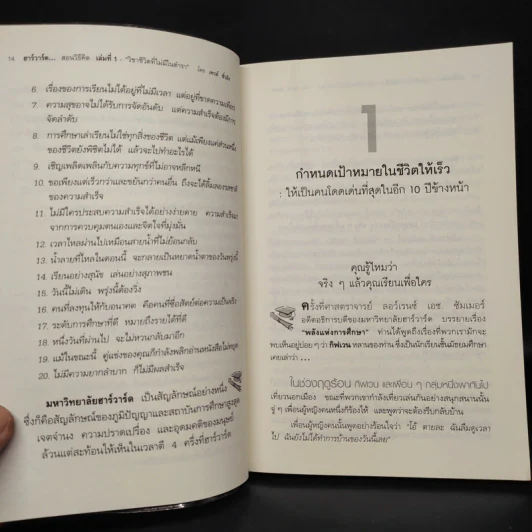 14 ฮาร์วาร์ด... สอนวิธีคิด เล่มที่ 1 - "วิชาชีวิตที่ไม่มีในตำรา" โดย
6. เรื่องของการเรียนไม่ได้อยู่ที่ไม่มีเวลา แต่อยู่ที่ขาดความเพียร
7. ความสุขอาจไม่ได้รับการจัดอันดับ แต่ความสำเร็จต้องมีการ
จัดลำดับ
8. การศึกษาเล่าเรียนไม่ใช่ทุกสิ่งของชีวิต แต่แม้เพียงแค่ส่วนหนึ่ง
ของชีวิตยังพิชิตไม่ได้ แล้วจะไปทำอะไรได้
9. เชิญเพลิดเพลินกับความทุกข์ที่ไม่อาจหลีกหนี
10. ขอเพียงแต่เร็วกว่าและขยันกว่าคนอื่น ถึงจะได้ลิ้มลองรสชาติ
ของความสำเร็จ
11. ไม่มีใครประสบความสำเร็จได้อย่างง่ายดาย ความสำเร็จมา
จากการควบคุมตนเองและจิตใจที่มุ่งมั่น
12. เวลาไหลผ่านไปเหมือนสายน้ำที่ไม่ย้อนกลับ
13. น้ำลายที่ไหลในตอนนี้ จะกลายเป็นหยาดน้ำตาของวันพรุ่งนี้
14. เรียนอย่างสุนัข เล่นอย่างสุภาพชน
15. วันนี้ไม่เดิน พรุ่งนี้ต้องวิ่ง
16. คนที่ลงทุนให้กับอนาคต คือคนที่ซื่อสัตย์ต่อความเป็นจริง
17. ระดับการศึกษาที่ดี หมายถึงรายได้ที่ดี
18. หนึ่งวันที่ผ่านไป จะไม่หวนกลับมาอีก
19. แม้ในขณะนี้ คู่แข่งของคุณก็กำลังพลิกอ่านหนังสือไม่หยุด
20. ไม่มีความยากลำบาก ก็ไม่มีผลสำเร็จ
มหาวิทยาลัยฮาร์วาร์ด เป็นสัญลักษณ์อย่างหนึ่ง
ซึ่งก็คือสัญลักษณ์ของภูมิปัญญาและสถาบันการศึกษาสูงสุด
เจตจำนง ความปราดเปรื่อง และอุดมคติของมนุษย์
ล้วนแต่สะท้อนให้เห็นในเวลาตี 4 ครึ่งที่ฮาร์วาร์ด
1
กำหนดเป้าหมายในชีวิตให้เร็ว
: ให้เป็นคนโดดเด่นที่สุดในอีก 10 ปีข้างหน้า
คุณรู้ไหมว่า
จริง ๆ แล้วคุณเรียนเพื่อใคร
ครั้งที่ศาสตราจารย์ ลอว์เรนซ์ เอช. ซัมเมอร์
อดีตอธิการบดีของมหาวิทยาลัยฮาร์วาร์ด บรรยายเรื่อง
"พลังแห่งการศึกษา" ท่านได้พูดถึงเรื่องที่พวกเรามักจะ
พบเห็นอยู่บ่อย ๆ ว่า กิฟเวน หลานของท่าน ซึ่งเป็นนักเรียนชั้นมัธยมศึกษา
เคยเล่าว่า ...
ในช่วงฤดูร้อน กิฟเวน และเพื่อน ๆ กลุ่มหนึ่งพากันไป
เที่ยวนอกเมือง ขณะที่พวกเขากำลังเที่ยวเล่นกันอย่างสนุกสนานนั้น
จู่ ๆ เพื่อนผู้หญิงคนหนึ่งก็ร้องไห้ และพูดว่าจะต้องรีบกลับบ้าน
เพื่อนผู้หญิงคนนั้นพูดอย่างร้อนใจว่า "โอ๊ ตายละ ฉันลืมดูเวลา
ไป ฉันยังไม่ได้ทำการบ้านของวันนี้เลย"